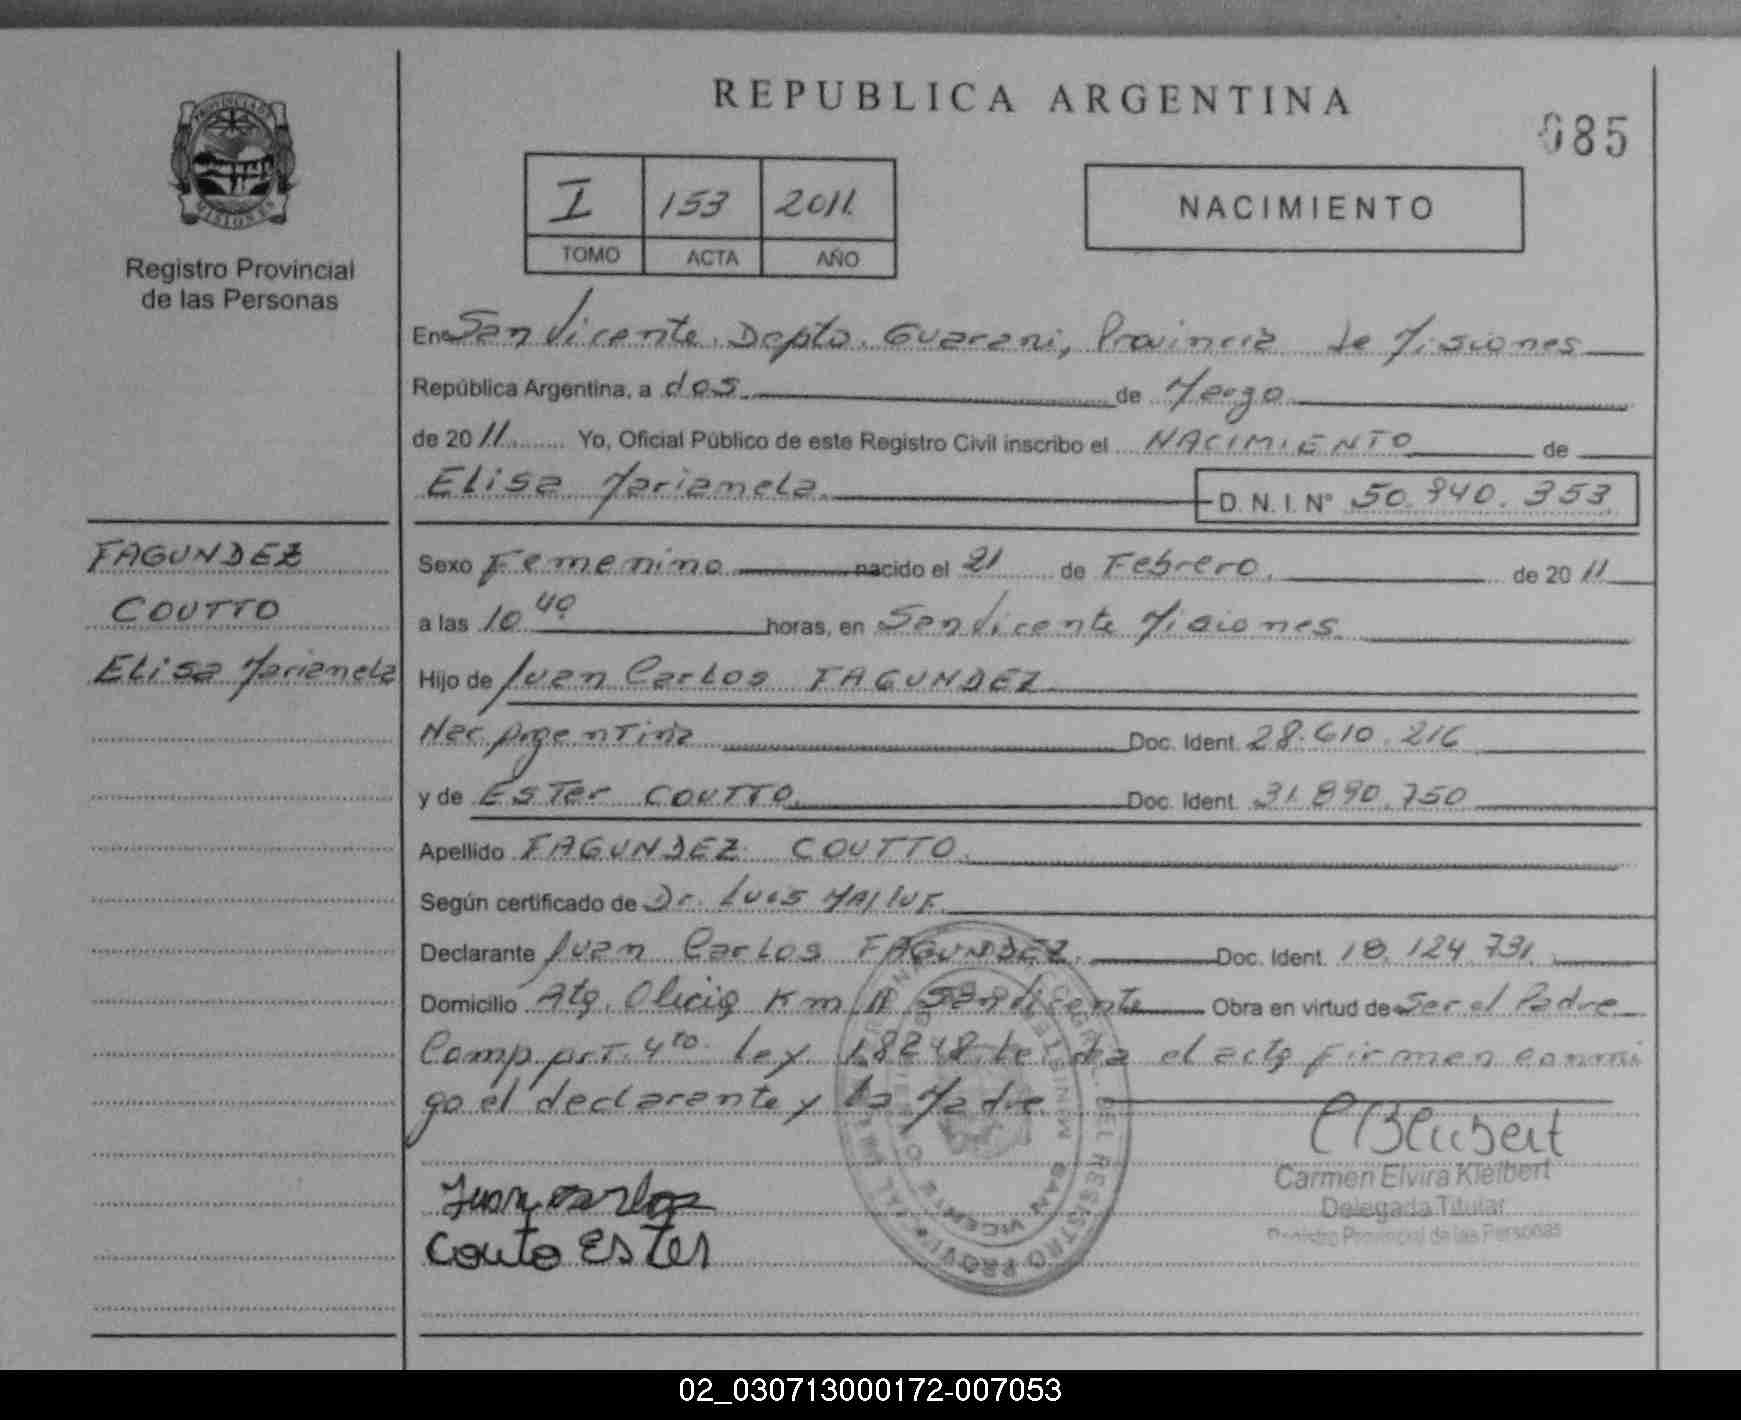 REPUBLICA ARGENTINA
085
PROVINCIA DE
MISIONES
Registro Provincial
de las Personas
I 153 2011
TOMO ACTA AÑO
NACIMIENTO
En San Vicente Depto. Guarani, Provincia de Misiones
República Argentina, a dos de Marzo
de 2011 Yo, Oficial Público de este Registro Civil inscribo el NACIMIENTO de
Elisa Marianela D. N. I. N° 50.940.353
FAGUNDEZ
COUTTO
Elisa Marianela
Sexo Femenino nacido el 21 de Febrero de 2011
a las 10 40 horas, en San Vicente Misiones
Hijo de Juan Carlos FAGUNDEZ
Nac. Argentina Doc. Ident. 28.610.216
y de Ester COUTTO Doc. Ident. 31.890.750
Apellido FAGUNDEZ COUTTO
Según certificado de Dr. Luis
Declarante Juan Carlos FAGUNDEZ Doc. Ident. 18.124.731
Domicilio Km San Vicente Obra en virtud de Ser el Padre
Comp. Art. 4to. Ley 18248 Leida el acta firman conmi
go el declarante y la Madre
Juan Carlos
Couto Ester
Carmen Elvira Kleibert
Delegada Titular
Registro Provincial de las Personas
02_030713000172-007053